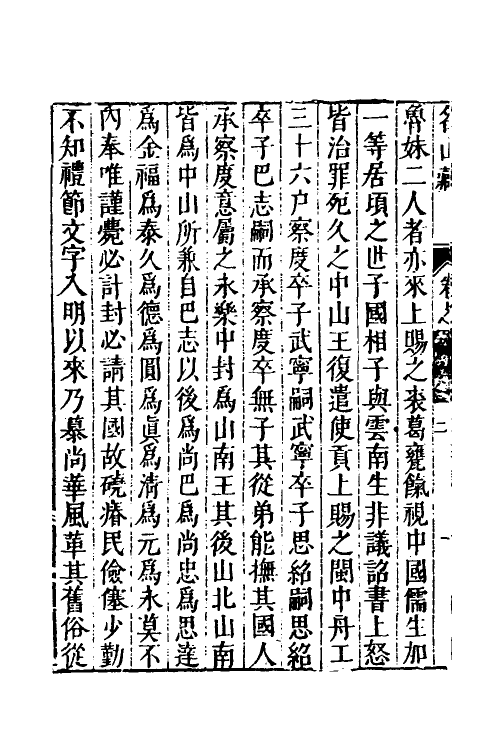 名山藏 卷之 二
魯妹二人者亦來上賜之衾葛饔餼視中國儒生加
一等居頃之世子國相子與雲南生非議詔書上怒
皆治罪死久之中山王復遣使貢上賜之閩中舟工
三十六户察度卒子武寧嗣武寧卒子思紹嗣思紹
卒子巴志嗣而承察度卒無子其從弟能撫其國人
承察度意屬之永樂中封爲山南王其後山北山南
皆爲中山所兼自巴志以後爲尚巴爲尚忠爲思達
爲金福爲泰久爲德爲圓爲眞爲清爲元爲永莫不
內奉唯謹薨必計封必請其國故磽瘠民儉僿少勤
不知禮節文字入明以來乃慕尚華風革其舊俗從